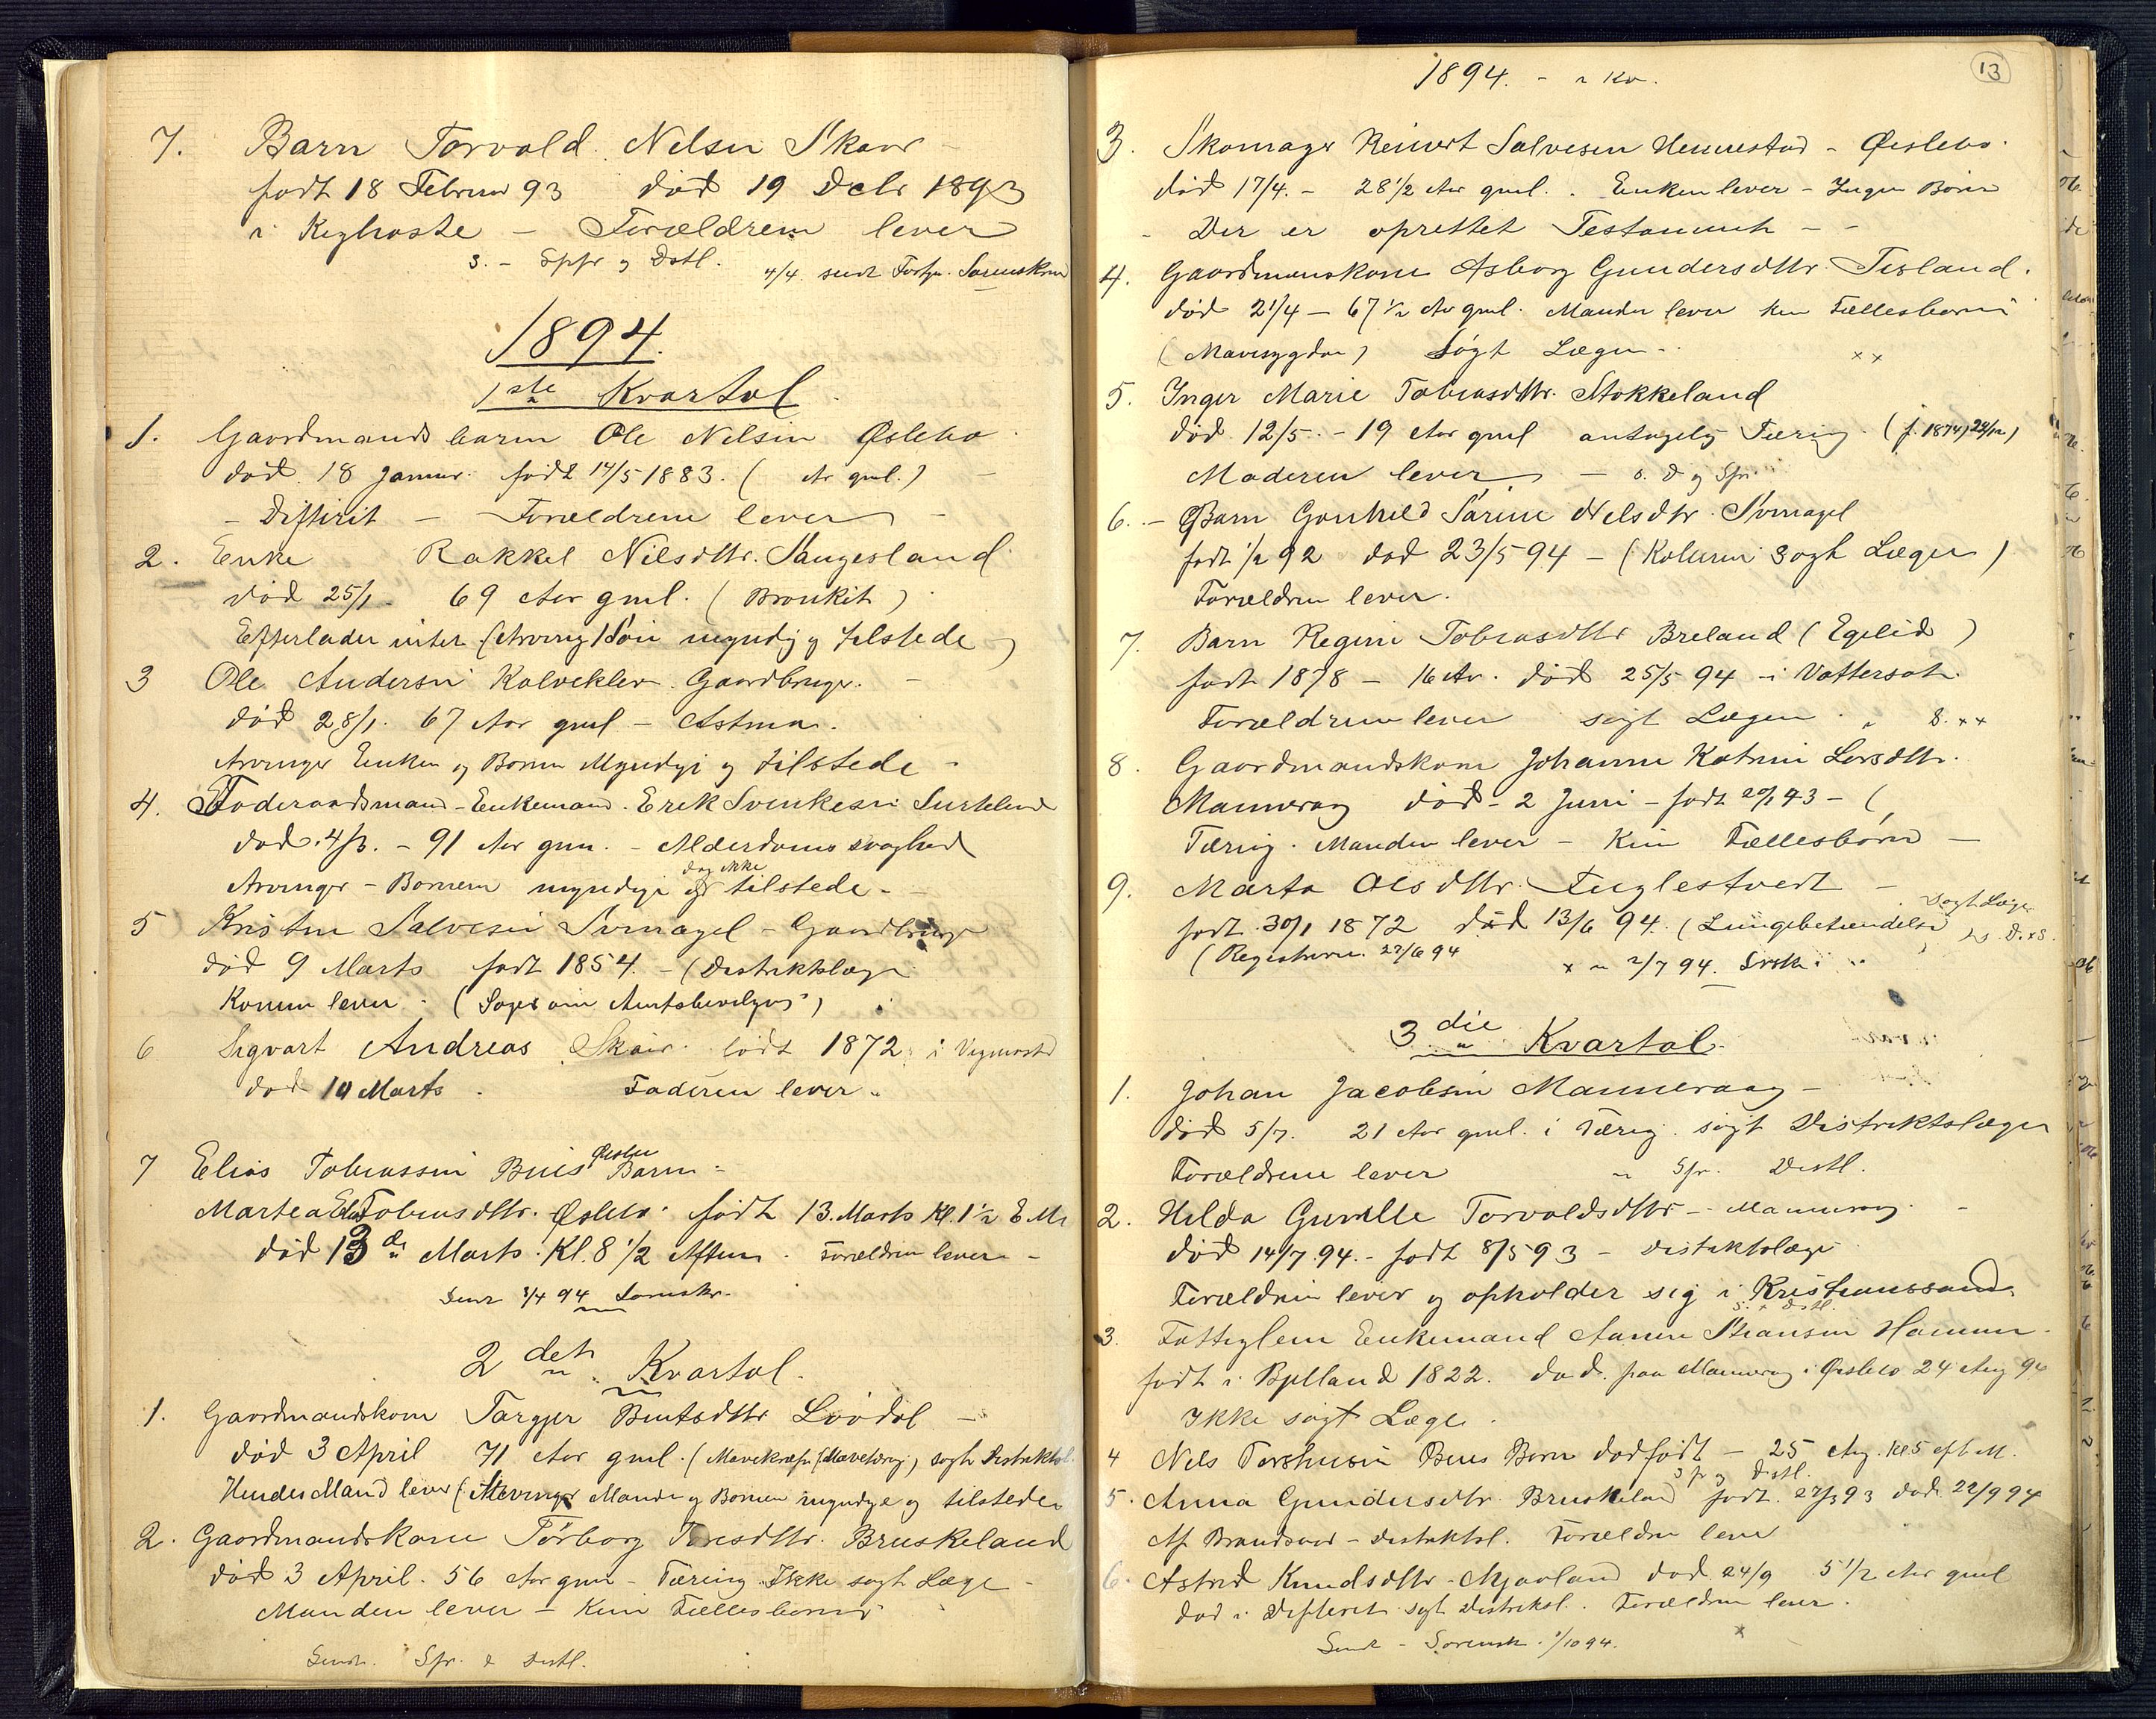 7. Barn Torvald Nelsen Skaar -
født 18 Februar 93 død 19 Debr 1893
i Kighoste - Forældrene lever
s. - Spfr og Dstl. 4/4 sendt Sorenskr
1894.
1ste Kvartal
1. Gaardmandsbarn Ole Nelsen Øslebø
død 18 Januar født 14/5 1883. ( Ar gml.) -
- Difterit - Forældrene lever -
2. Enke Rakkel Nilsdttr. Saugesland
død 25/1 69 Aar gml. (Bronkit)
Efterlader intet (Arving 1 Søn myndig og tilstede)
3 Ole Andersen Kalveklev Gaardbruger. -
død 28/1. 67 Aar gml - Astma.
Arvinger Enken og Børnene Myndige og tilstede -
4. Foderaadsmand - Enkemand. Erik Svenkesen
død 4/3. - 91 Aar gml. - Alderdomssvaghed
Arvinger - Børnene myndige dog ikke tilstede -
5 Kristen Salvesen Svinagel - Gaardbruger
død 9 Marts født 1854. - (Distriktslæge
Konen lever - (Søges om Amtsbevilgn.)
6 Sigvart Andreas Skaar født 1872 i Vigmostad
død 10 Marts. Faderen lever.
7 Elias Tobiassen Bues Øslebø Barn -
Martea Tobiasdttr. Øslebø født 13. Marts Kl. 1 1/2 E M
død 13de Marts. Kl. 8 1/2 Aften. Forældrene lever -
Sendt 3/4 94 Sorenskr.
2det Kvartal.
1. Gaardmandskone Targjer Bentsdttr Løvdal -
død 3 April 71 Aar gml. (Mavekræft (Mavetæring) søgt Distriktsl.
Hendes Mand lever (Arvinger Manden og Børnene myndige og tilstede
2. Gaardmandskone Torborg Toresdttr. Bruskeland
død 3 April. 56 Aar gml - Tæring. Ikke søgt Læge -
Manden lever - Kun Fællesbørn
Sendt. Spr. & Distl.
13
1894. - 2 Kv.
3. Skomager Reinert Salvesen Hennestad - Øislebø.
død 17/4. - 28 1/2 Aar gml. . Enken lever - Ingen Børn
- Der er oprettet Testament - -
4. Gaardmanskone Asborg Gundersdttr. Tisland.
død 21/4 - 67 1/2 Ar gml. Manden lever kun Fællesbørn
(Mavesygdom) Søgt Lægen - x x
5. Inger Marie Tobiasdttr. Stokkeland
død 12/5. - 19 Aar gml antagelig Tæring. (f. 1874) 24/12)
Moderen lever - s. D og Spr.
6. - Barn Gonhild Sarine Nelsdtr. Svinagel
født 1/2 92 død 23/5 94 - (Kolerin søgt Læge)
Forældrene lever.
7. Barn Regine Tobiasdttr Breland (Egelid)
født 1878 - 16 Ar. død 25/5 94 - i Vattersot.
Forældrene lever søgt Lægen. " 8. xx
8. Gaardmandskone Johanne Katrine Larsdttr.
Manneraag død - 2 Juni - født 20/1 43 - (
Tæring. Manden lever - Kun Fællesbørn -
9. Marta Olsdttr. Fuglestvedt - Søgt Læge
født 30/1 1872 død 13/6 94. (Lungebetændelse)
(Registreres. 27/6 94 x 2/7 94.
3die Kvartal.
1. Johan Jacobsen Manneraag -
død 5/7. 21 Aar gml. i Tæring. søgt Distriktslægen
Forældrene lever Spr. Distl.
2. Hilda Gurelle Torvaldsdttr - Manneraag. -
død 14/7 94. - født 8/5 93 - Distriktslæge
Forældrene lever og opholder sig i Kristianssand.
S. + Distl.
3. Fattiglem Enkemand Aanen Stiansen
født i Bjelland 1822. død. paa Manneraag i Øislebø 24 Aug 94
Ikke søgt Læge.
4 Nels Torshusen Bues Barn dødfødt - 25 Aug. Kl 5 eft. M.
Spr og Distl.
5. Anna Gundersdtr. Bruskeland født. 27/3 93 død. 22/9 94
Af Brandsaar - Distriktsl. Forældrene lever
6. Astrid Knudsdttr - Mjaaland død. 24/9 5 1/2 Aar gml
død i Difterit søgt Distriktsl. Forældrene lever.
Sendt - Sorensk. 1/10 94. x